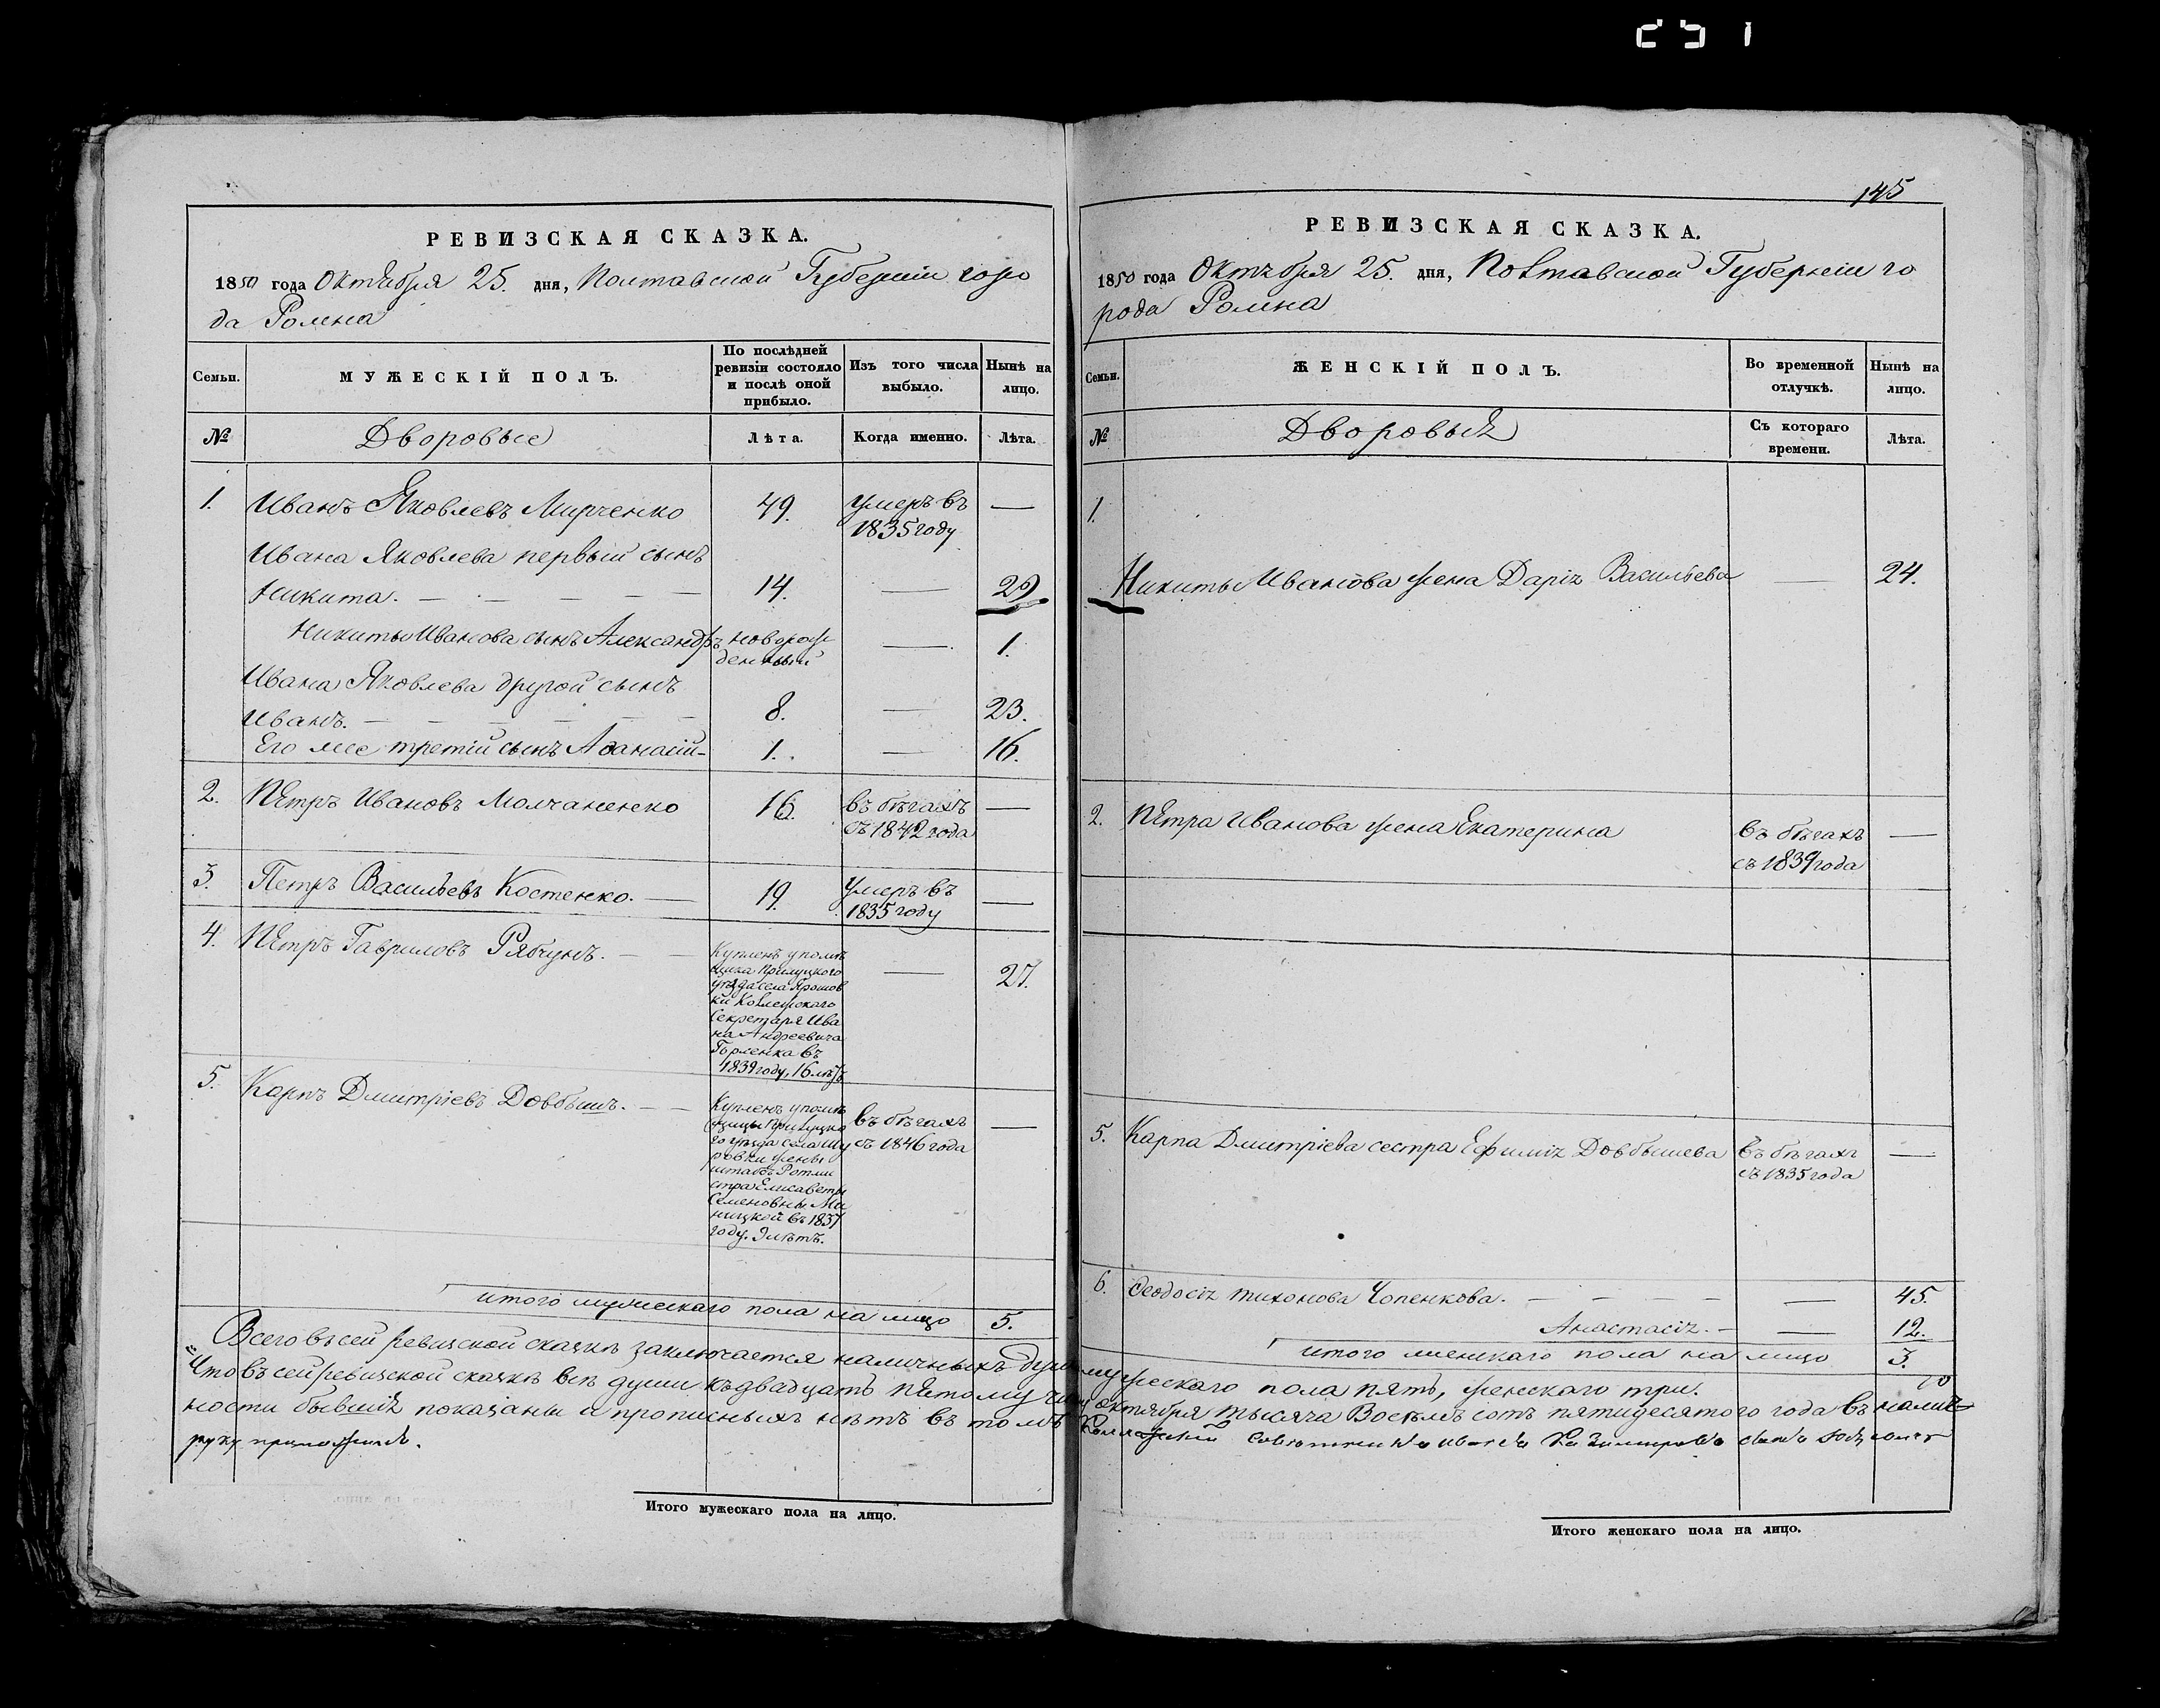 251
РЕВИЗСКАЯ СКАЗКА.
1850 года Октября 25. дня, Полтавской Губерніи горо
да Ромна
Семьи.
МУЖЕСКІЙ ПОЛЪ.
По послѣдней
ревизіи состояло
и послѣ оной
прибыло.
Изъ того числа
выбыло.
Нынѣ на
лицо.
№
Дворовые
Лѣта.
Когда именно.
Лѣта.
1. Иванъ Яковлевъ Мирченко 49. умеръ въ —
1835 году
Ивана Яковлева первый сынъ
Никита. — — — — — 14. — 29
Никиты Иванова сынъ Александръ новорож — 1.
денный
Ивана Яковлева другой сынъ
Иванъ. — — — — — — 8. — 23.
Его же третій сынъ Аѳанасій — 1. — 16.
2. Петръ Ивановъ Молчаненко 16. въ бѣгахъ —
съ 1842 года
3. Петръ Васильевъ Костенко. — 19. Умеръ въ —
1835 году
4. Петръ Гавриловъ Рябчунъ. — — — 27.
Купленъ у помѣ
щика Прилуцкого
уѣзда села Ярошов
ки Колежскаго
Секретаря Ива
на Андреевича
Горленка въ
1839 году, 16 лѣтъ
5. Карпъ Дмитріевъ Довбышъ. — — въ бѣгахъ —
съ 1846 года
Купленъ у помѣ
щицы Прилуцко
го уѣзда села Шу
ровки жены
штабъ Ротми
стра Елисаветы
Семеновны
въ 1837
году. 9 лѣтъ.
итого мужескаго пола на лицо 5.
Итого мужескаго пола на лицо.
145
РЕВИЗСКАЯ СКАЗКА.
1850 года Октября 25. дня, Полтавской Губерніи го
рода Ромна
Семьи.
ЖЕНСКІЙ ПОЛЪ.
Во временной
отлучкѣ.
Нынѣ на
лицо.
№
Дворовыя
Съ котораго
времени.
Лѣта.
1.
Никиты Иванова жена Дарія Васильева — 24.
2. Петра Иванова жена Екатерина въ бѣгахъ —
съ 1839 года
5. Карпа Дмитріева сестра Ефимія Довбышева въ бѣгахъ —
съ 1835 года
6. Ѳеодосія Тихонова Чопенкова. — — — — — 45.
Анастасія. — — 12.
итого женскаго пола на лицо 3.
Всего въ сей ревизской сказкѣ заключается наличныхъ душъ мужескаго пола пять, женскаго три.
Что въ сей ревизской сказкѣ всѣ души къ двадцать пятому числу октября тысяча Восемь сотъ пятидесятого года въ налич
ности бывшія показаны и прописныхъ нѣтъ въ томъ
руку приложилъ.
Итого женскаго пола на лицо.